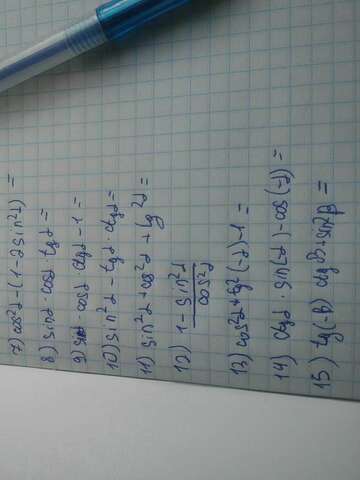 7) cos²α - (1 - 2 sin²α) =
8) sinα · cosα · tgα =
9) sinα · cosα · ctgα - 1 =
10) sin²α - tgα · ctgα =
11) sin²α + cos²α + tg²α =
12) 1 - sin²α / cos²α
13) cos²α + tg²(-α) - 1 =
14) ctgα · sin(-α) - cos(-α) =
15) tg(-β) · ctgβ + sin²β =